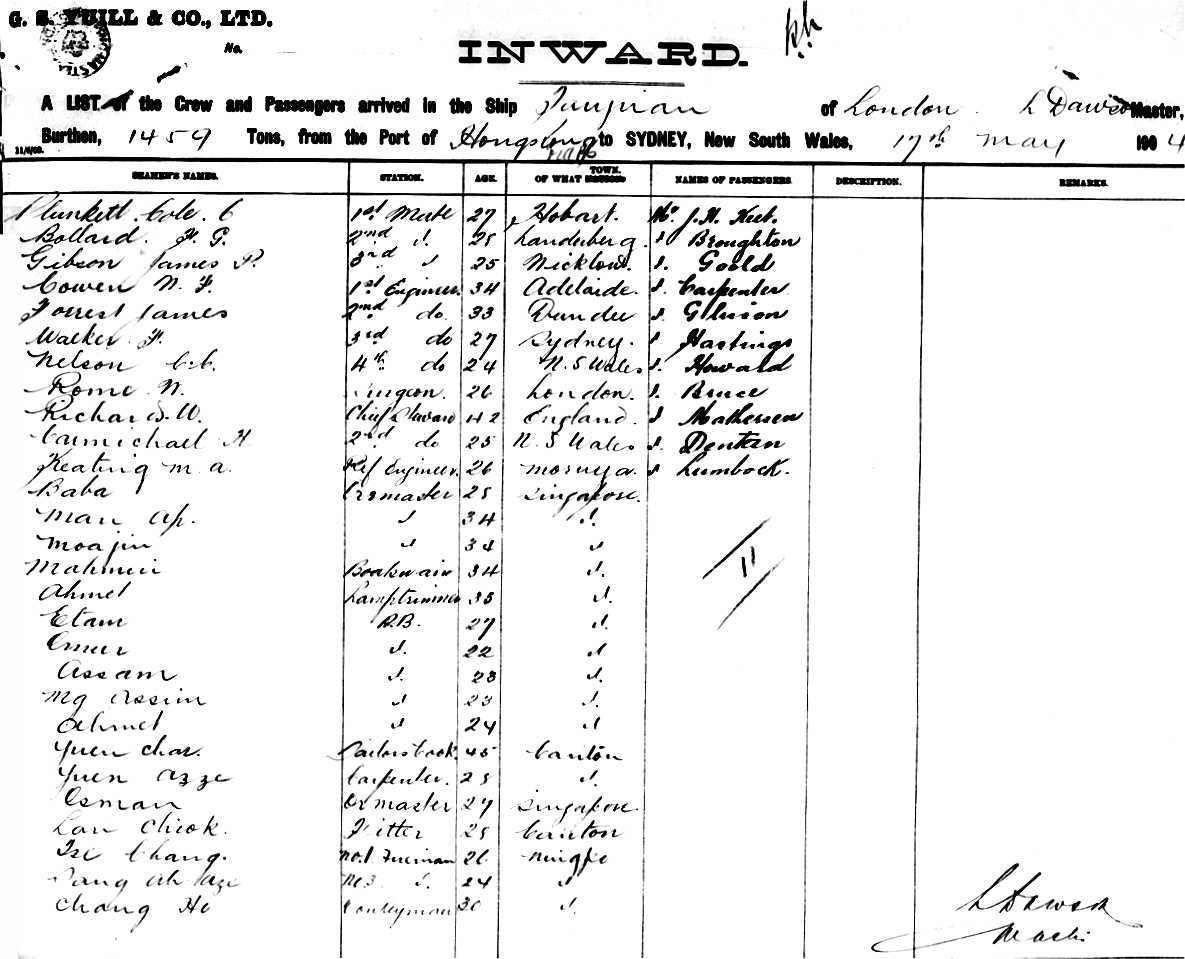 G. S. YUILL & CO., LTD.
No.
INWARD.
A LIST of the Crew and Passengers arrived in the Ship of London. L Dawson Master,
Burthen, 1459 Tons, from the Port of Hongkong to SYDNEY, New South Wales, 17th May 1904
11/6/03.
SEAMEN'S NAMES. STATION. AGE. OF WHAT TOWN. NAMES OF PASSENGERS. DESCRIPTION. REMARKS.
Plunkett Cole. C 1st Mate 27 Hobart. Mr J. H.
Bollard. F. G. 2nd d. 28 d. Broughton
Gibson James P. 3rd d 25 Wicklow. d. Goold
Cowen N. F. 1st Engineer. 34 Adelaide. d. Carpenter
Forrest James 2nd do. 33 Dundee d. Gibson
Walker F. 3rd do 27 Sydney. d Hastings
Nelson C.C. 4th do 24 N.S Wales d. Howard
Rome N. Surgeon. 26 London. d. Bruce
Richards. W. Chief Steward 42 England. d Mathersen
Carmichael H 2nd do 25 N. S Wales d. Denten
Keating M. A. Ref Engineer. 26 Moruya. d Lumbock.
Baba Qrmaster 28 Singapore.
Man Ap. d 34 d.
Moajin d 34 d
Boatswain 34 d.
Ahmet Lamptrimmer 35 d.
Etam A.B. 27 d.
Omar d. 22 d
Assam d. 23 d.
Mg Assim d 23 d.
Ahmet d 24 d
Yuen Char. Sailors Cook. 45 Canton
Yuen Azze Carpenter. 28 d.
Osman Qrmaster 27 Singapore.
Lan Cheok. Fitter 28 Canton
Tze Chang. No.1 Fireman 26 Ningpo
Ah d. 24 d
Chang Ho Donkeyman 30 d.
11
L Dawson
Master